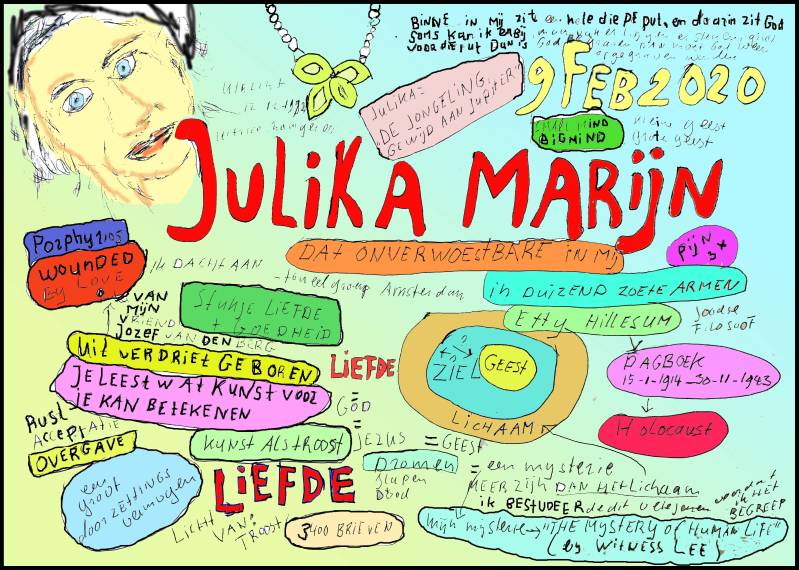 BINNE IN MIJ zit een hele diepe put, en daarin zit God
soms kan ik erbij
voor die put dan is God
9 FEB 2020
Utrecht
JULIKA =
DE JONGELING
GEWIJD AAN JUPITER
SMALL MIND
BIG MIND
kleine geest
grote geest
JULIKA MARIJN
Porphyrios
WOUNDED
BY LOVE
Ik DACHT AAN
DAT ONVERWOESTBARE IN MIJ
PIJN
- toneelgroep Amsterdam
in DUIZEND ZOETE ARMEN
Stukje LIEFDE
+ GOEDHEID
VAN
MIJN
VRIEND
Jozef VAN DEN BERG
Etty Hillesum
Joodse
Filosoof
UIT VERDRIET GEBOREN
LIEFDE
ZIEL
GEEST
LICHAAM
DAGBOEK
15-1-1914-30-11-1943
JE LEEST WAT KUNST VOOR
JE KAN BETEKENEN
=
GOD
=
Rust
ACCEPTATIE
OVERGAVE
KUNST ALS TROOST
JEZUS = GEEST
HOLOCAUST
Dromen
slapen
Dood
= een mysterie
MEER ZIJN DAN HET LICHAAM
ik BESTUDEERDE dit
ik HET
BEGREEP
LIEFDE
een
groot
doorzettings
vermogen
LICHT VAN
TROOST
3400 BRIEVEN
Mijn mysterie → "THE MYSTERY OF HUMAN LIFE"
(by WITNESS LEE)